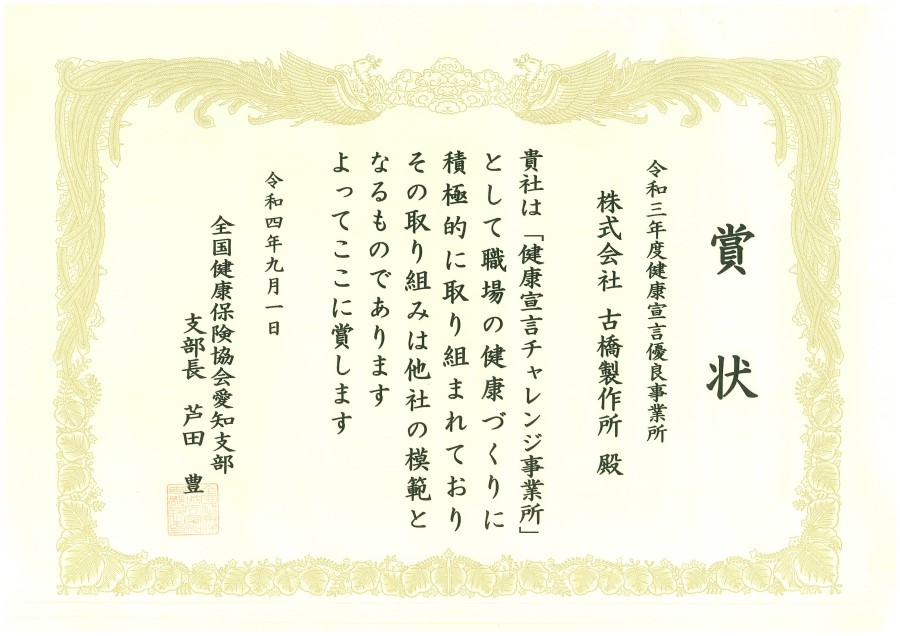 賞状
令和三年度健康宣言優良事業所
株式会社 古橋製作所 殿
貴社は「健康宣言チャレンジ事業所」
として職場の健康づくりに
積極的に取り組まれており
その取り組みは他社の模範と
なるものであります
よってここに賞します
令和四年九月一日
全国健康保険協会愛知支部
支部長 芦田 豊